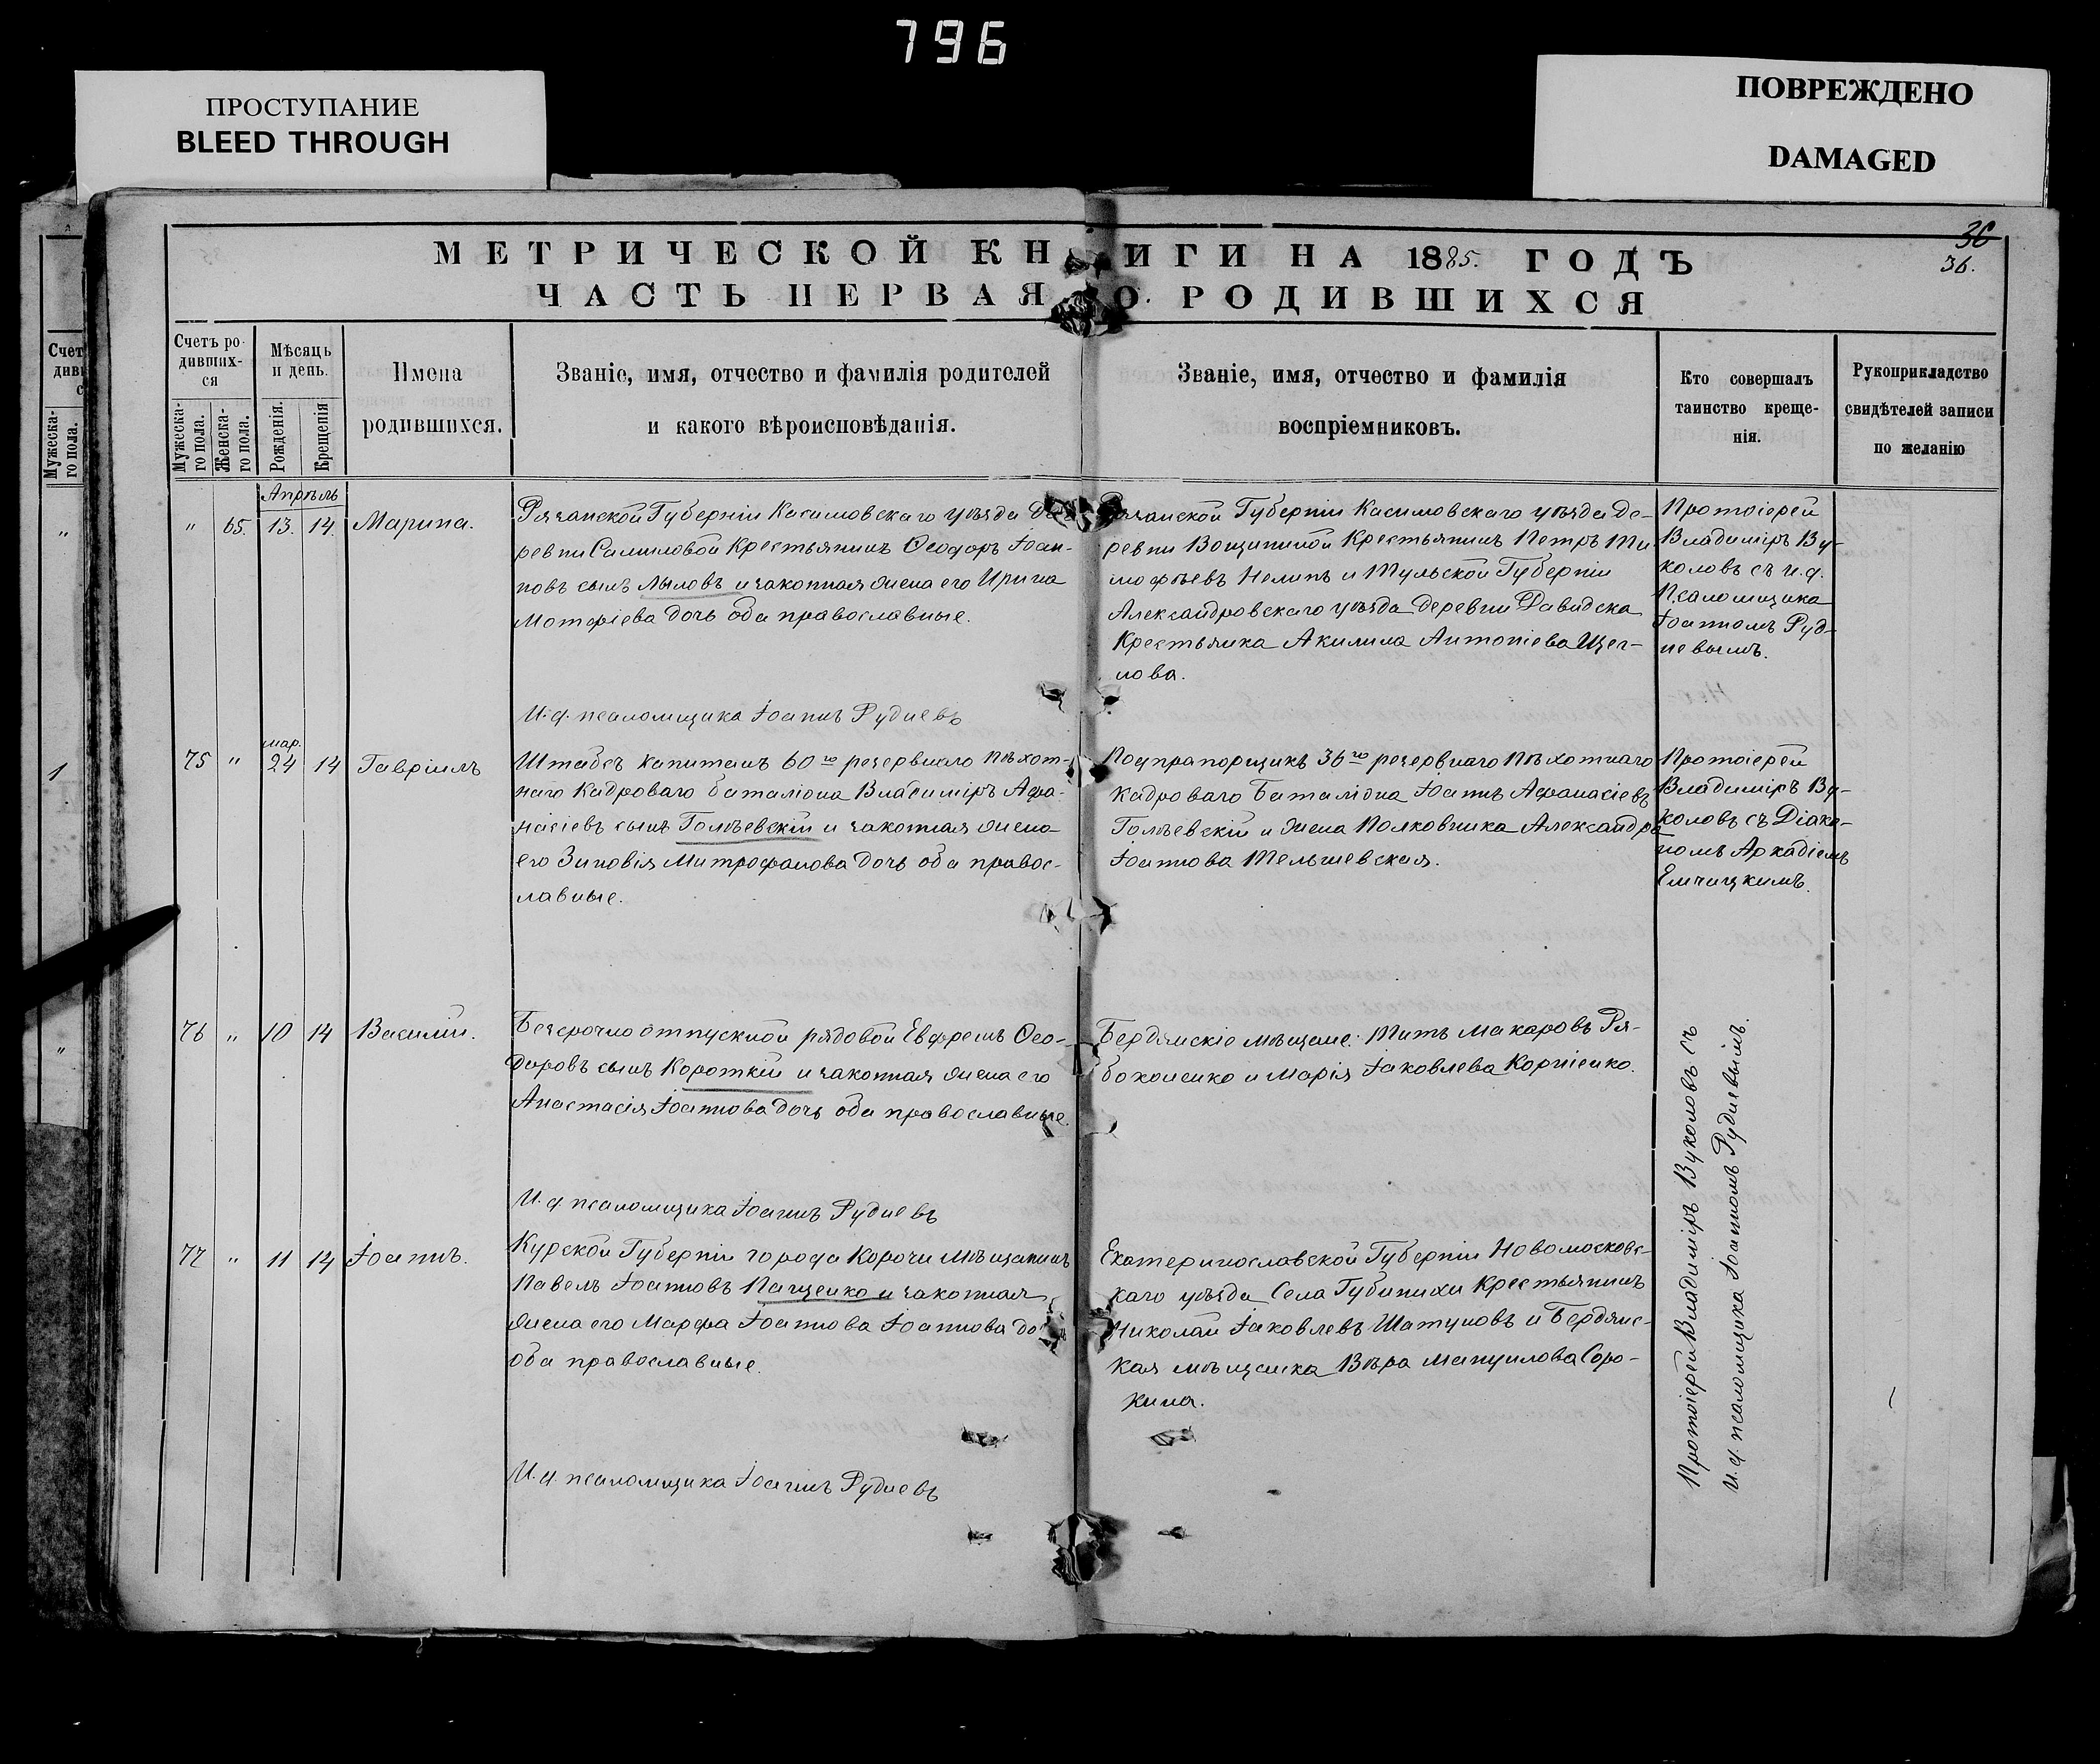 796
ПРОСТУПАНИЕ
BLEED THROUGH
ПОВРЕЖДЕНО
DAMAGED
36
36.
МЕТРИЧЕСКОЙ КНИГИ НА 1885. ГОДЪ
ЧАСТЬ ПЕРВАЯ О РОДИВШИХСЯ
Счетъ ро-
дивших-
ся
Мужеска-
го пола.
Женска-
го пола.
Мѣсяцъ
и день.
Рожденія.
Крещенія
Имена
родившихся.
Званіе, имя, отчество и фамилія родителей
и какого вѣроисповѣданія.
Званіе, имя, отчество и фамилія
воспріемниковъ.
Кто совершалъ
таинство креще-
нія.
Рукоприкладство
свидѣтелей записи
по желанію
Апрѣль
" 65. 13. 14. Марина.
Рязанской Губерніи Касимовскаго уѣзда Де-
ревни Самиловой Крестьянинъ Ѳеодоръ Іоан-
новъ сынъ Лыловъ и законная жена его Ирина
Мотфіева дочь оба православные.
Рязанской Губерніи Касимовскаго уѣзда Де-
ревни Вощининой Крестьянинъ Петръ Ти-
мофѣевъ Нелинъ и Тульской Губерніи
Александровскаго уѣзда деревни Давидска
Крестьянка Акилина Антоніева Щег-
лова.
Протоіерей
Владиміръ Ву-
коловъ съ и.д.
Псаломщика
Іоанномъ Руд-
невымъ.
И.д. псаломщика Іоаннъ Рудневъ
75 " мар. 24 14 Гавріилъ
Штабсъ капитанъ 60го резервнаго пѣхот-
наго Кадроваго баталіона Владиміръ Афа-
насіевъ сынъ Голѣевскій и законная жена
его Зиновія Митрофанова дочь оба правос-
лавные.
Подпрапорщикъ 36го резервнаго Пѣхотнаго
Кадроваго Баталіона Іоаннъ Афанасіевъ
Голѣевскій и жена Полковника Александра
Іоаннова Тельшевская.
Протоіерей
Владиміръ Ву-
коловъ съ Діако-
номъ Аркадіемъ
Емчицкимъ.
76 " 10 14 Василій.
Безсрочно отпускной рядовой Евфремъ Ѳео-
доровъ сынъ Короткій и законная жена его
Анастасія Іоаннова дочь оба православные.
Бердянскіе мѣщане: Титъ Макаровъ Ря-
боконенко и Марія Іаковлева Корніенко.
И.д. псаломщика Іоаннъ Рудневъ
77 " 11 14 Іоаннъ.
Курской Губерніи города Корочи Мѣщанинъ
Павелъ Іоанновъ Пащенко и законная
жена его Марфа Іоаннова Іоаннова дочь
оба православные.
Екатеринославской Губерніи Новомосковс-
каго уѣзда Села Губинихи Крестьянинъ
Николай Іаковлевъ Шатуновъ и Бердянс-
кая мѣщанка Вѣра Мануилова Соро-
кина.
Протоіерей Владиміръ Вуколовъ съ
и.д. псаломщика Іоанномъ Рудневымъ.
И.д. псаломщика Іоаннъ Рудневъ